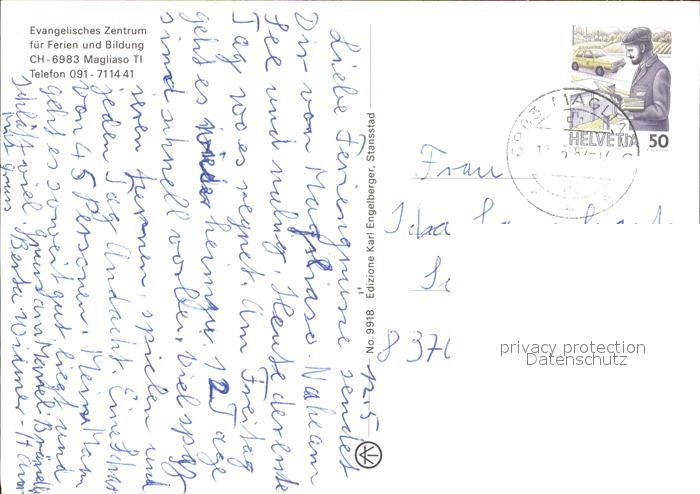 Evangelisches Zentrum
für Ferien und Bildung
CH-6983 Magliaso TI
Telefon 091-71 14 41
12.5
Liebe Feriengrüsse sendet
Dir von Magliaso. Nahe am
See und ruhig. Heute der erste
Tag wo es regnet. Am Freitag
geht es wieder heimzu. 12 Tage
sind schnell vorbei. Viel spass
turnen, spielen und
jeden Tag Andacht. Eine Schar
von 45 Personen. Mein Mann
geht es soweit gut. liegt und
schläft viel.
No. 9918 Edizione Karl Engelberger, Stansstad
6983 MAGLIASO
HELVETIA
50
Frau
Ida
837
privacy protection
Datenschutz